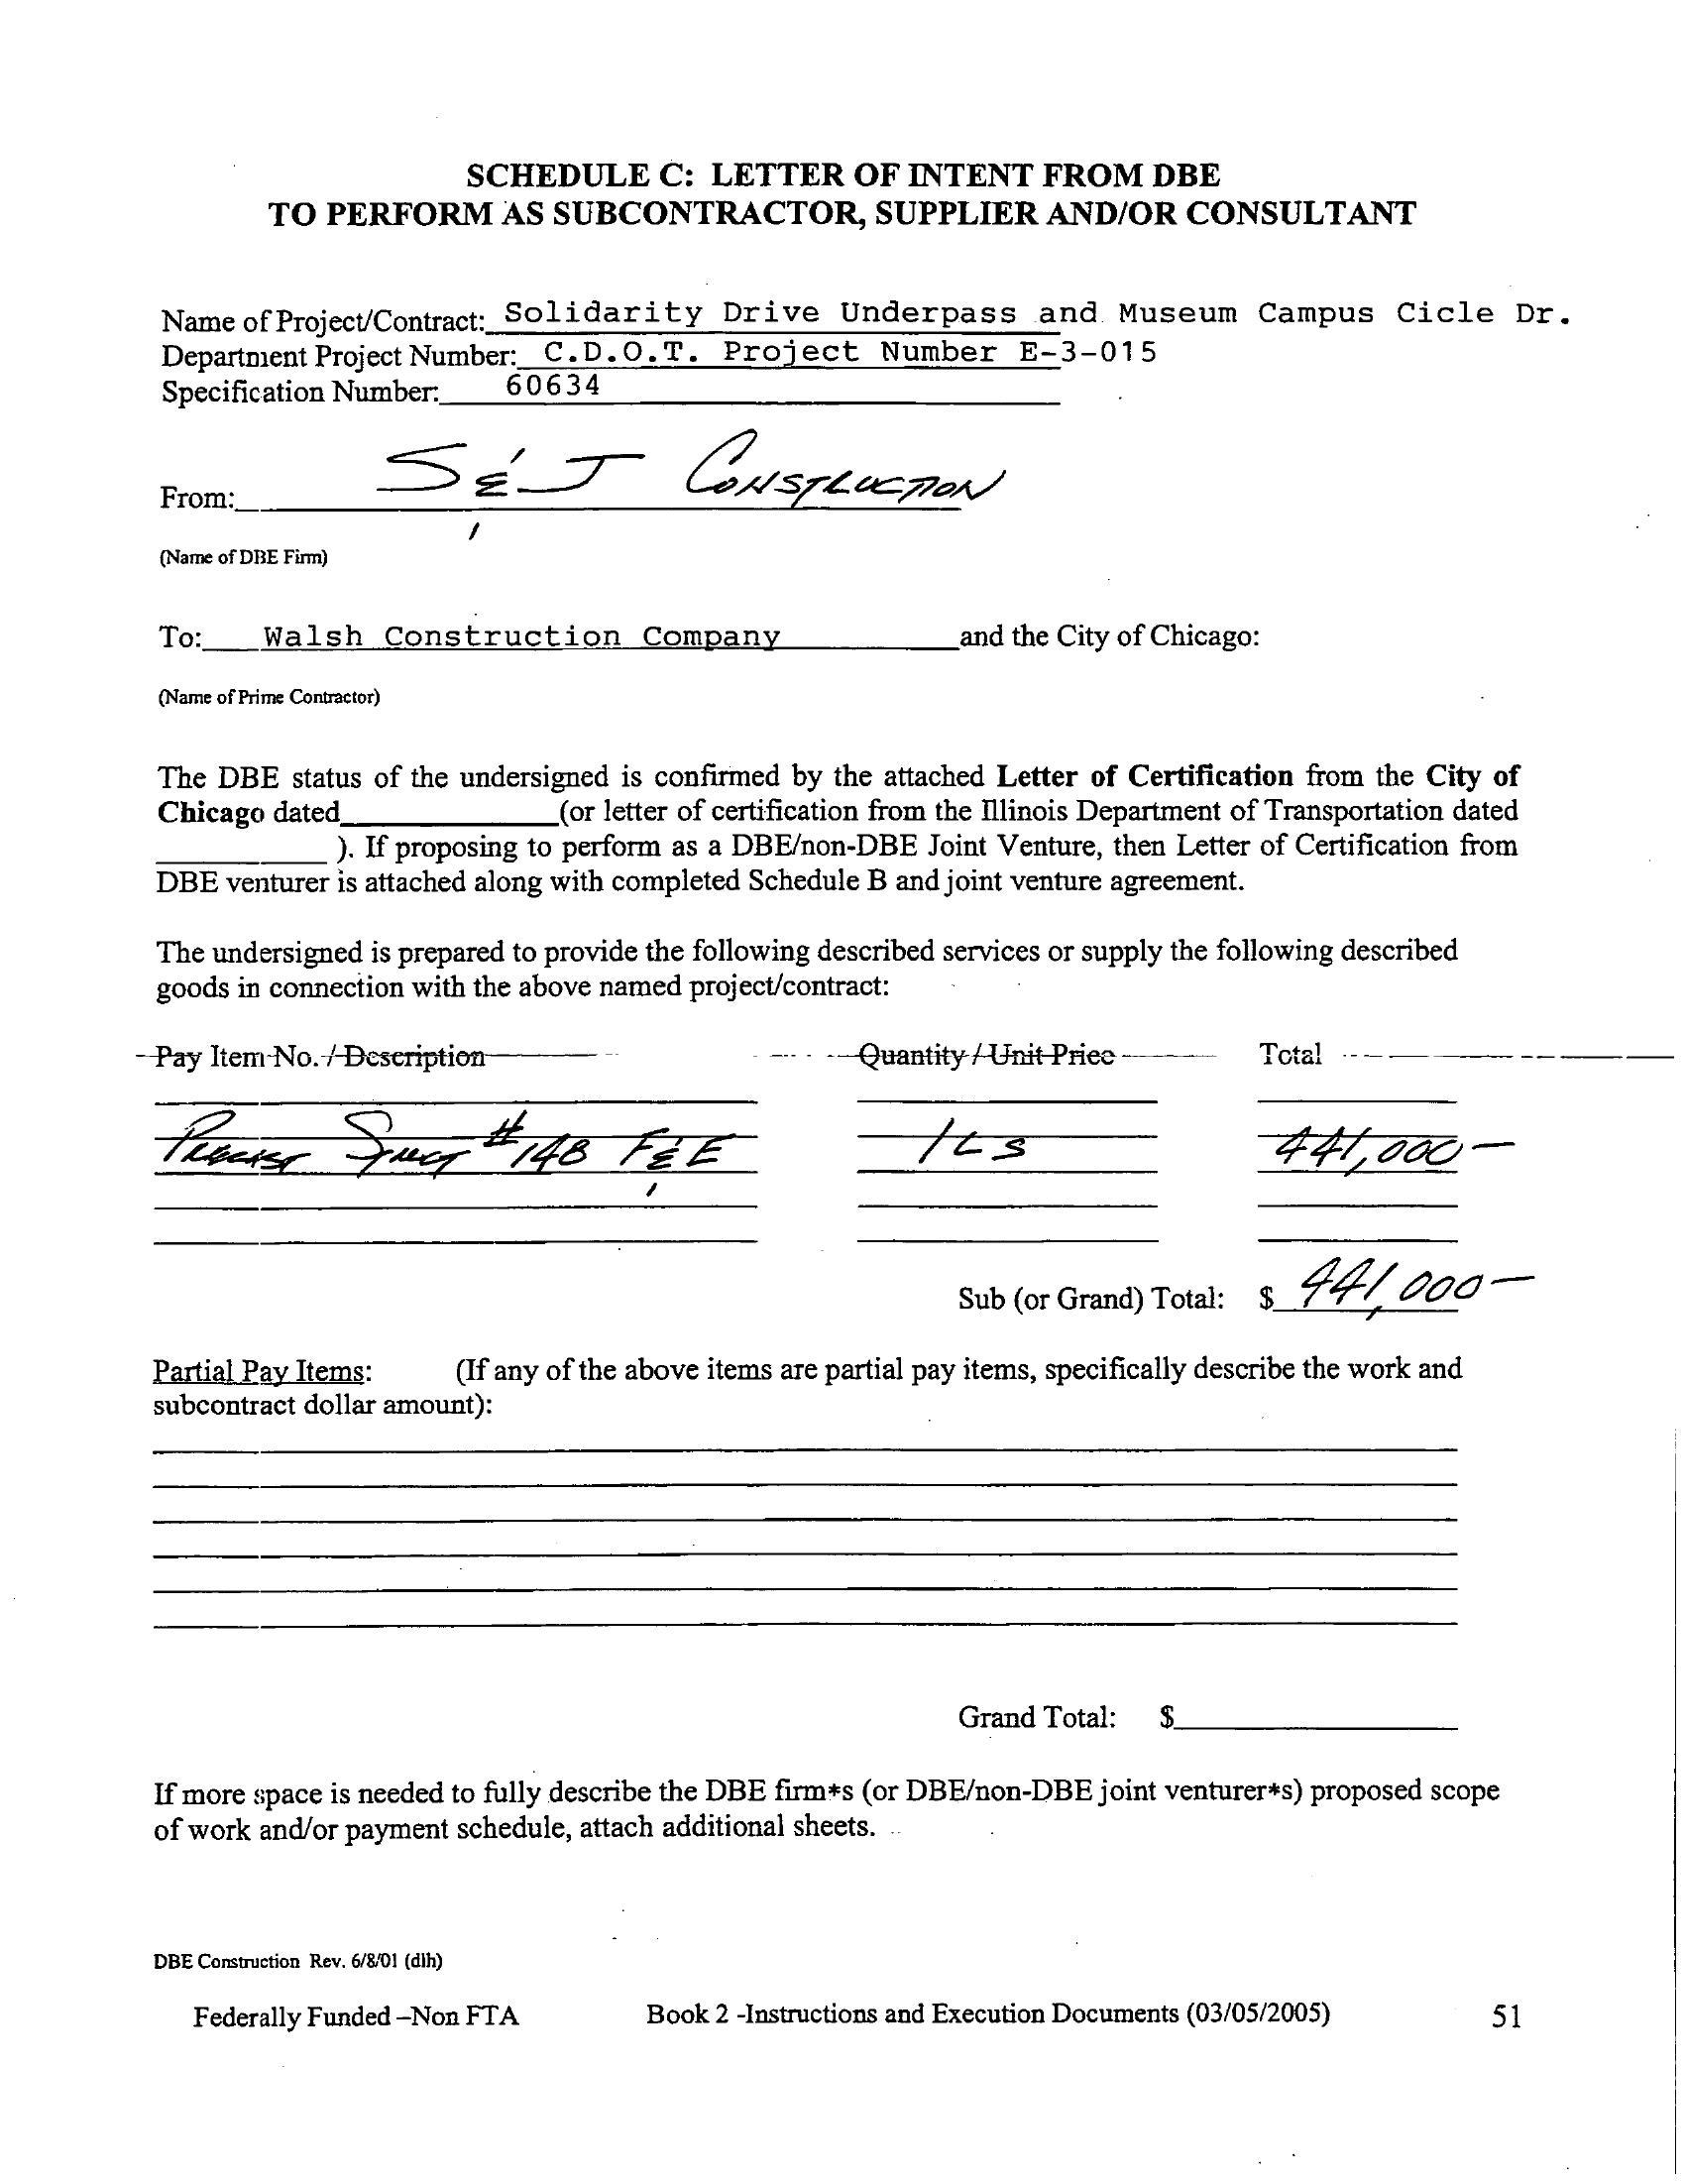 SCHEDULE C: LETTER OF INTENT FROM DBE
TO PERFORM AS SUBCONTRACTOR, SUPPLIER AND/OR CONSULTANT
Name of Project/Contract: Solidarity Drive Underpass and Museum Campus Cicle Dr.
Department Project Number: C.D.O.T. Project Number E-3-015
Specification Number: 60634
From: S & J CONSTRUCTION
(Name of DBE Firm)
To: Walsh Construction Company and the City of Chicago:
(Name of Prime Contractor)
The DBE status of the undersigned is confirmed by the attached Letter of Certification from the City of
Chicago dated (or letter of certification from the Illinois Department of Transportation dated
). If proposing to perform as a DBE/non-DBE Joint Venture, then Letter of Certification from
DBE venturer is attached along with completed Schedule B and joint venture agreement.
The undersigned is prepared to provide the following described services or supply the following described
goods in connection with the above named project/contract:
Pay Item No. / Description Quantity / Unit Price Total
PRECAST STRUCT #148 F & E 1 LS 441,000-
Sub (or Grand) Total: $ 441,000-
Partial Pay Items: (If any of the above items are partial pay items, specifically describe the work and
subcontract dollar amount):
Grand Total: $
If more space is needed to fully describe the DBE firm*s (or DBE/non-DBE joint venturer*s) proposed scope
of work and/or payment schedule, attach additional sheets.
DBE Construction Rev. 6/8/01 (dlh)
Federally Funded –Non FTA Book 2 -Instructions and Execution Documents (03/05/2005) 51